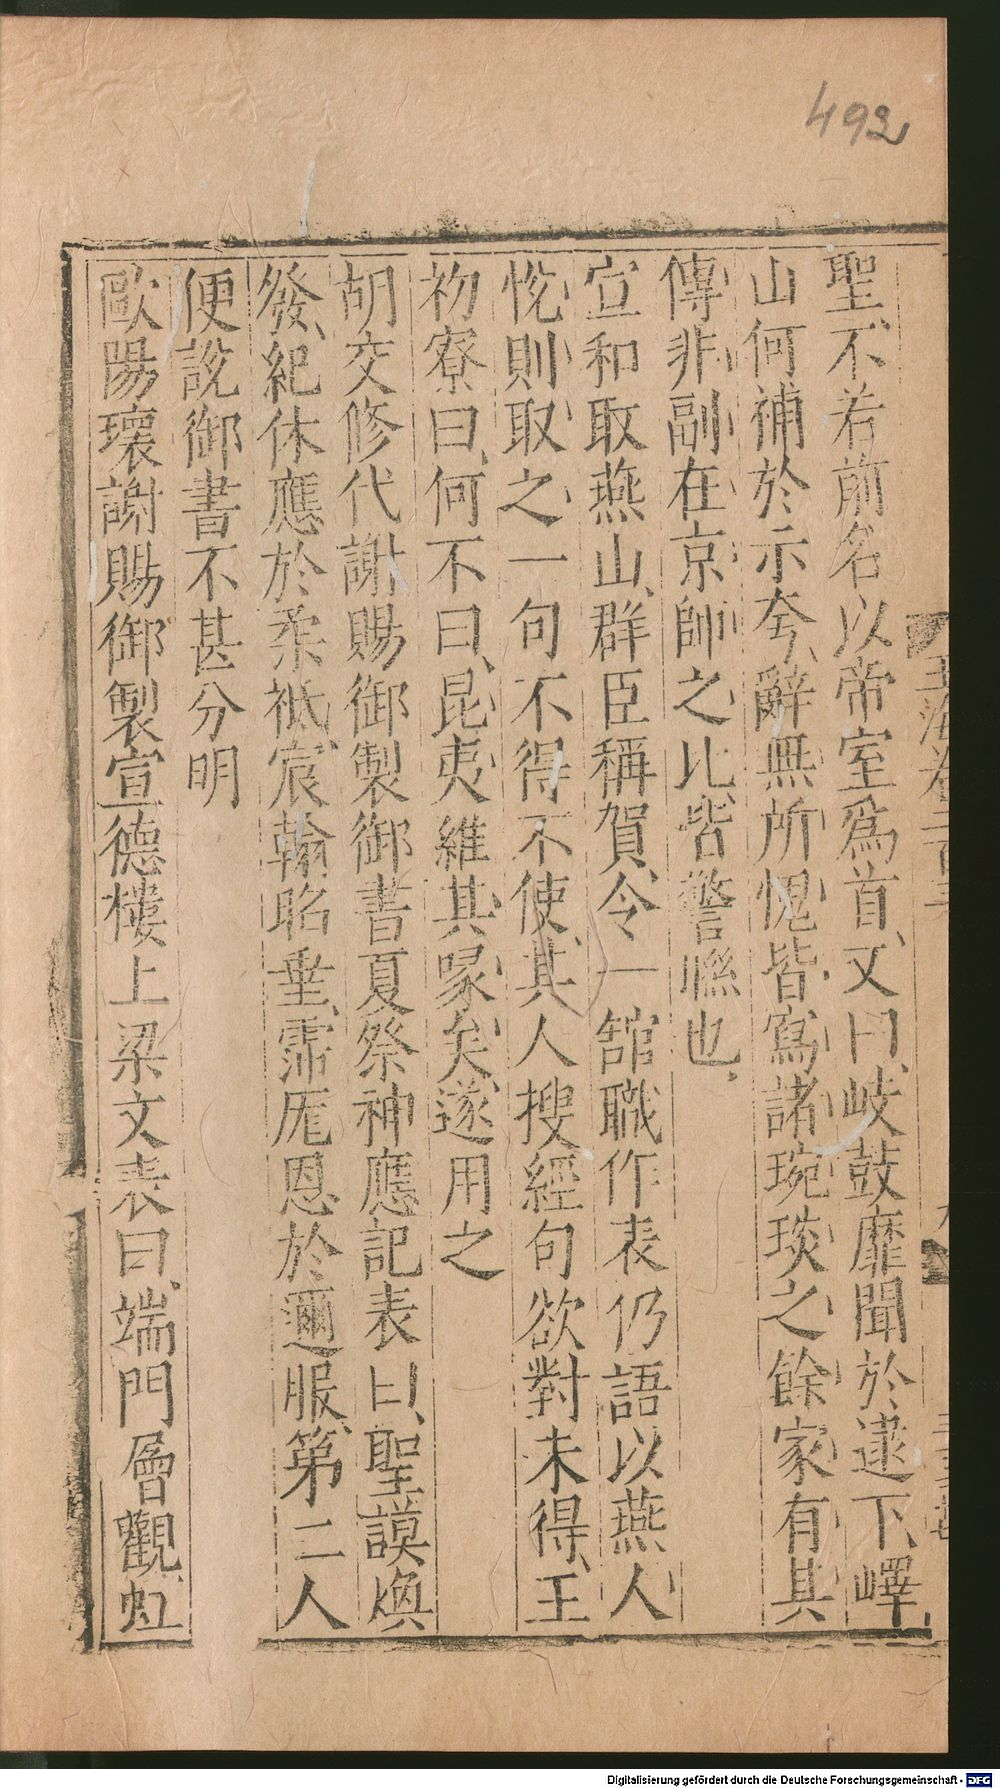 492
聖、不若前名以帝室爲首、又曰、岐鼓靡聞於逮下、嶧
山何補於示夸、辭無所愧皆寫諸琬琰之餘家有其
傳非副在京師之比、皆警聯也、
宣和取燕山、群臣稱賀、令一館職作表仍語以燕人
悅則取之一句不得不使、其人搜經句欲對未得、王
初寮曰、何不曰、昆夷維其喙矣、遂用之
胡交修代謝賜御製御書夏祭神應記表曰、聖謨煥
發、紀休應於柔祇、宸翰昭垂、霈厖恩於邇服、第二人
便說御書不甚分明
歐陽瓌謝賜御製宣德樓上梁文表曰、端門層觀、虹
玉海卷二百三
Digitalisierung gefördert durch die Deutsche Forschungsgemeinschaft - DFG